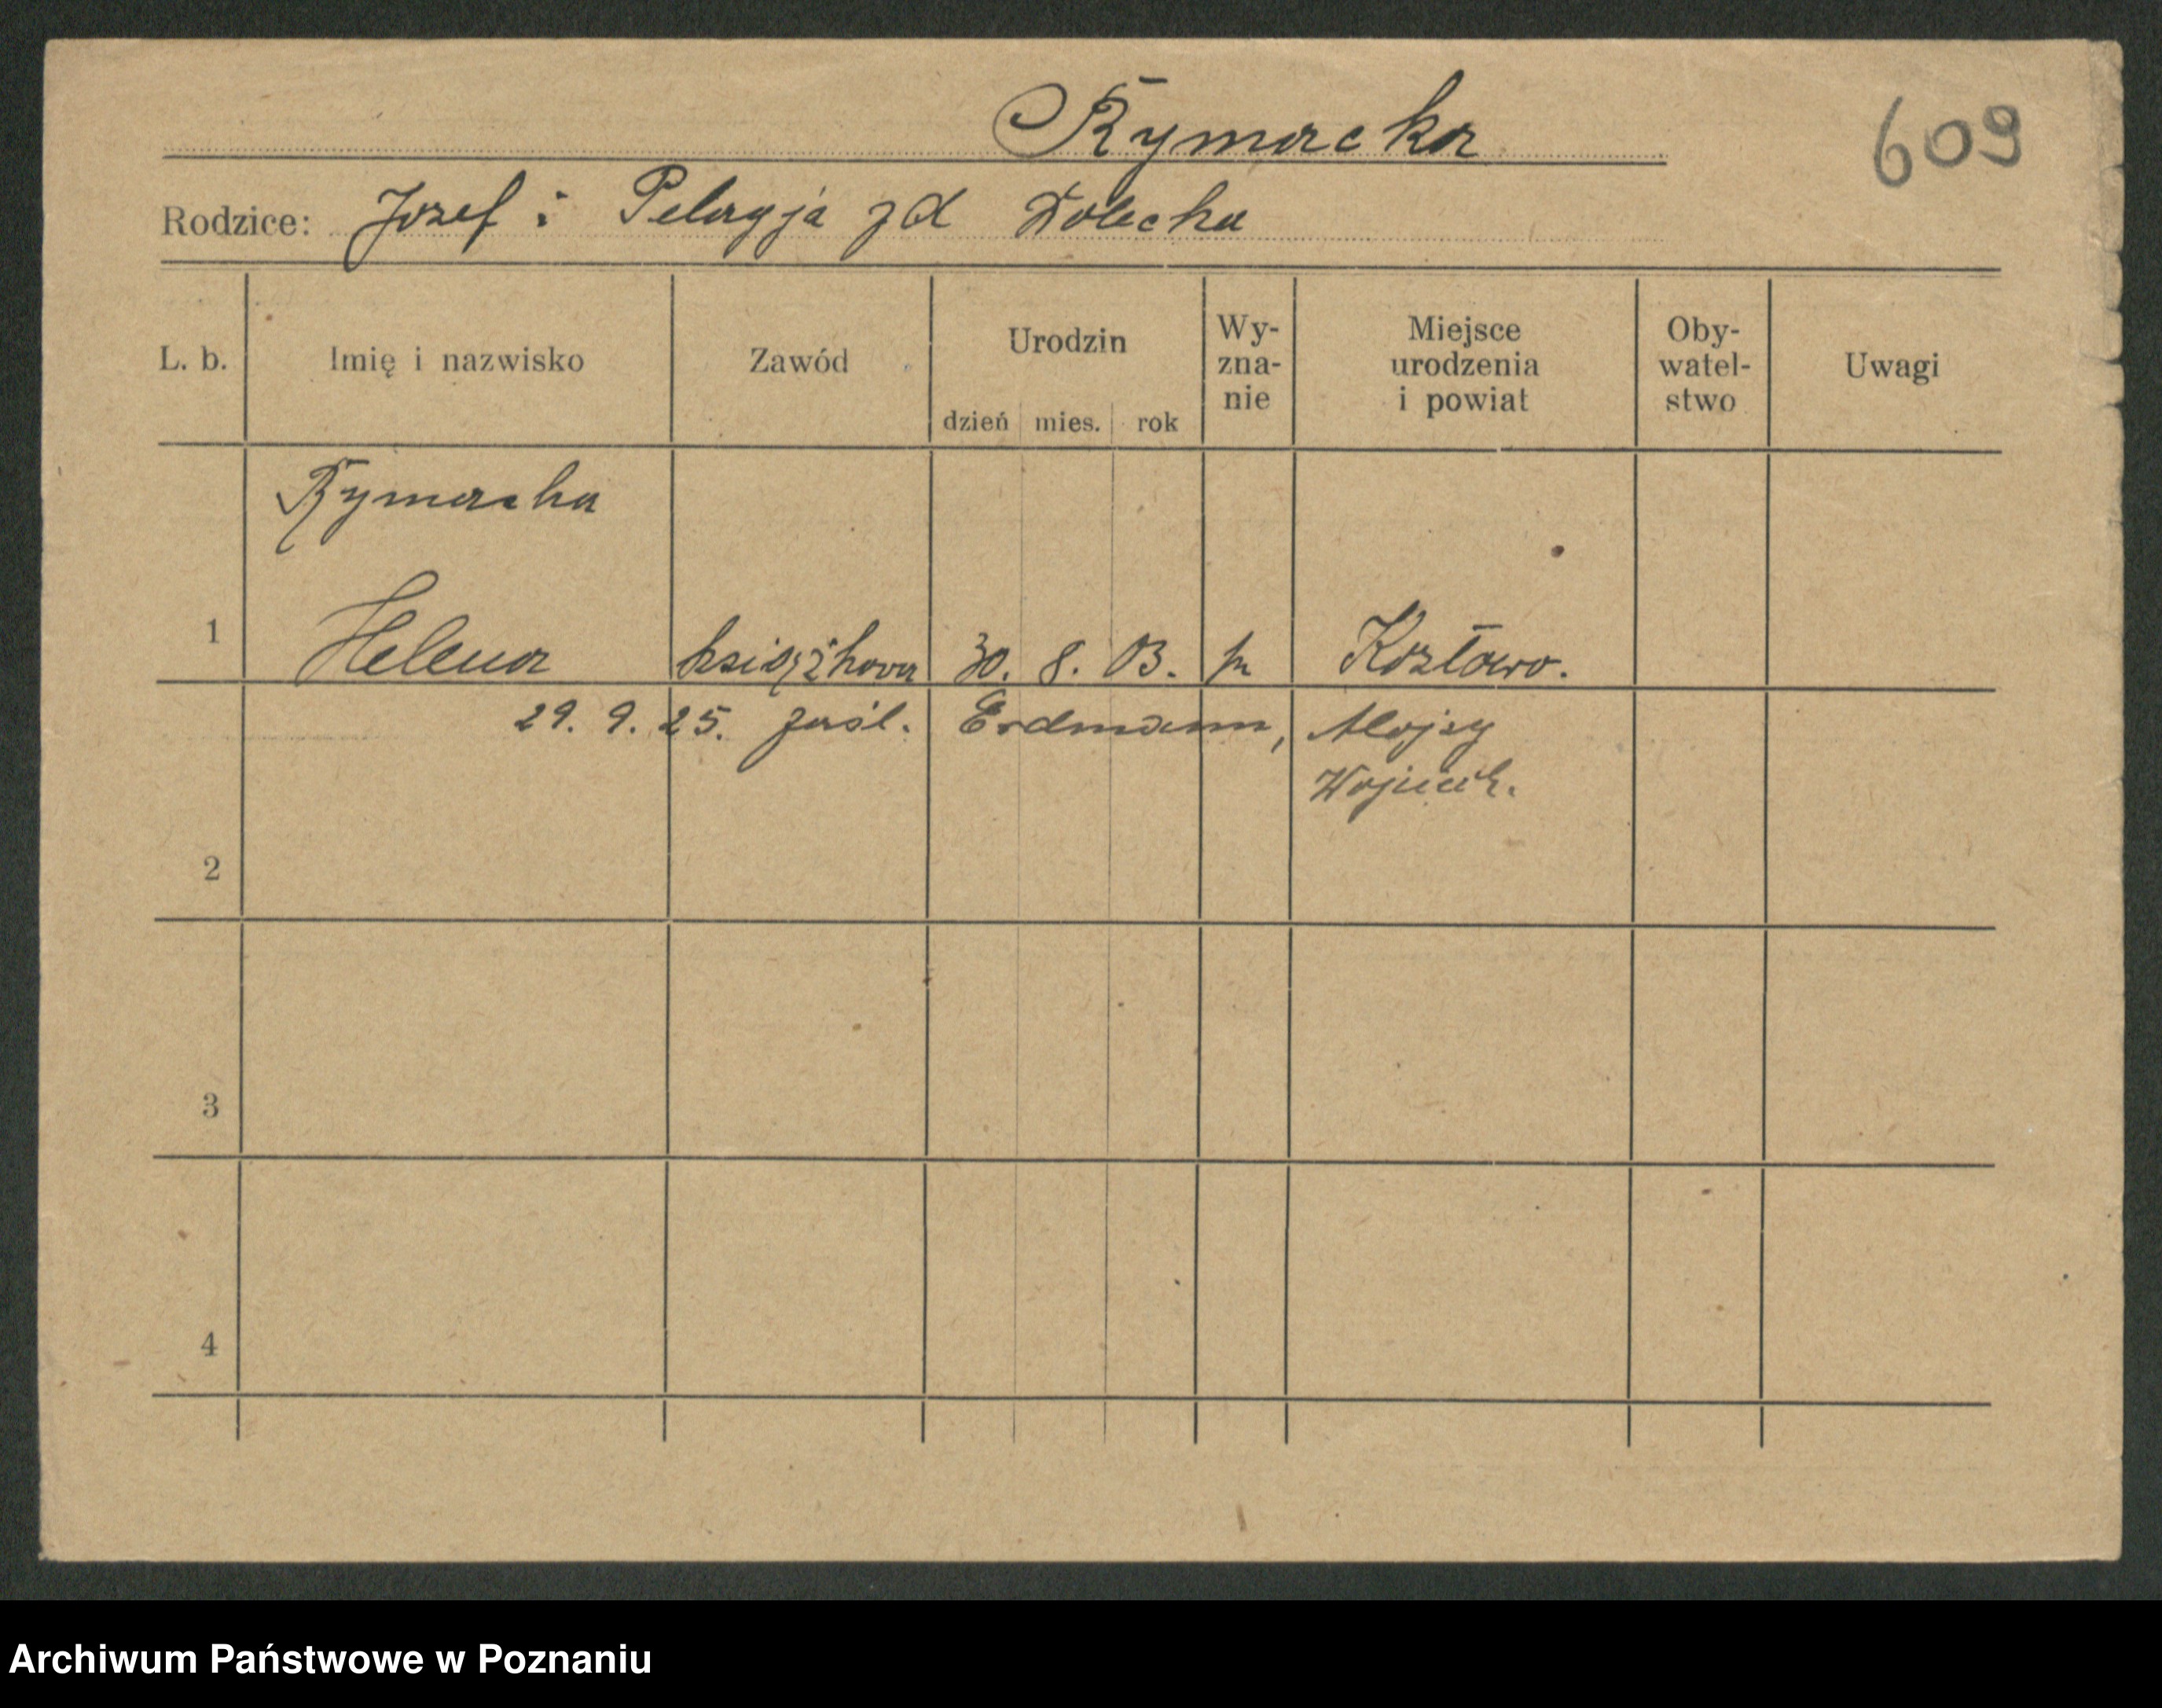 Rymacka
609
Rodzice: Jozef i Pelagja zd Dolecka
L. b. Imię i nazwisko Zawód Urodzin dzień mies. rok Wy-zna-nie Miejsce urodzenia i powiat Oby-watel-stwo Uwagi
Rymacka
1 Helena książkowa 30. 8. 03. Kozłowo.
29. 9. 25. zaśl. Erdmann, Alojzy
Wojciech.
2
3
4
Archiwum Państwowe w Poznaniu